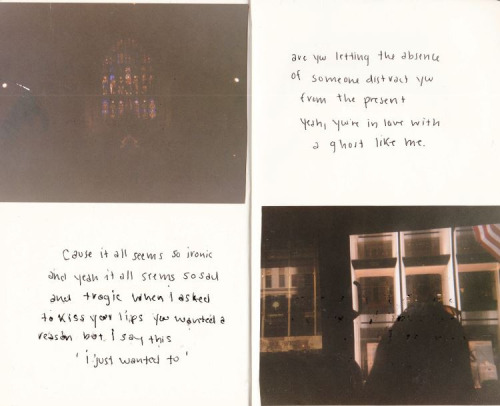 Cause it all seems so ironic
and yeah it all seems so sad
and tragic when I asked
to kiss your lips you wanted a
reason but I say this
"i just wanted to"
are you letting the absence
of someone distract you
from the present
yeah, you're in love with
a ghost like me.